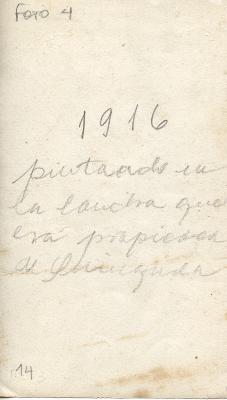 Foto 4
1916
pintando en
la lancha que
era propiedad
de Quinquela
14